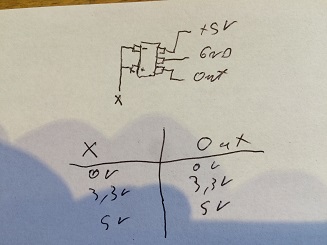 +5V
GND
Out
X
X Out
0V 0V
3,3V 3,3V
5V 5V